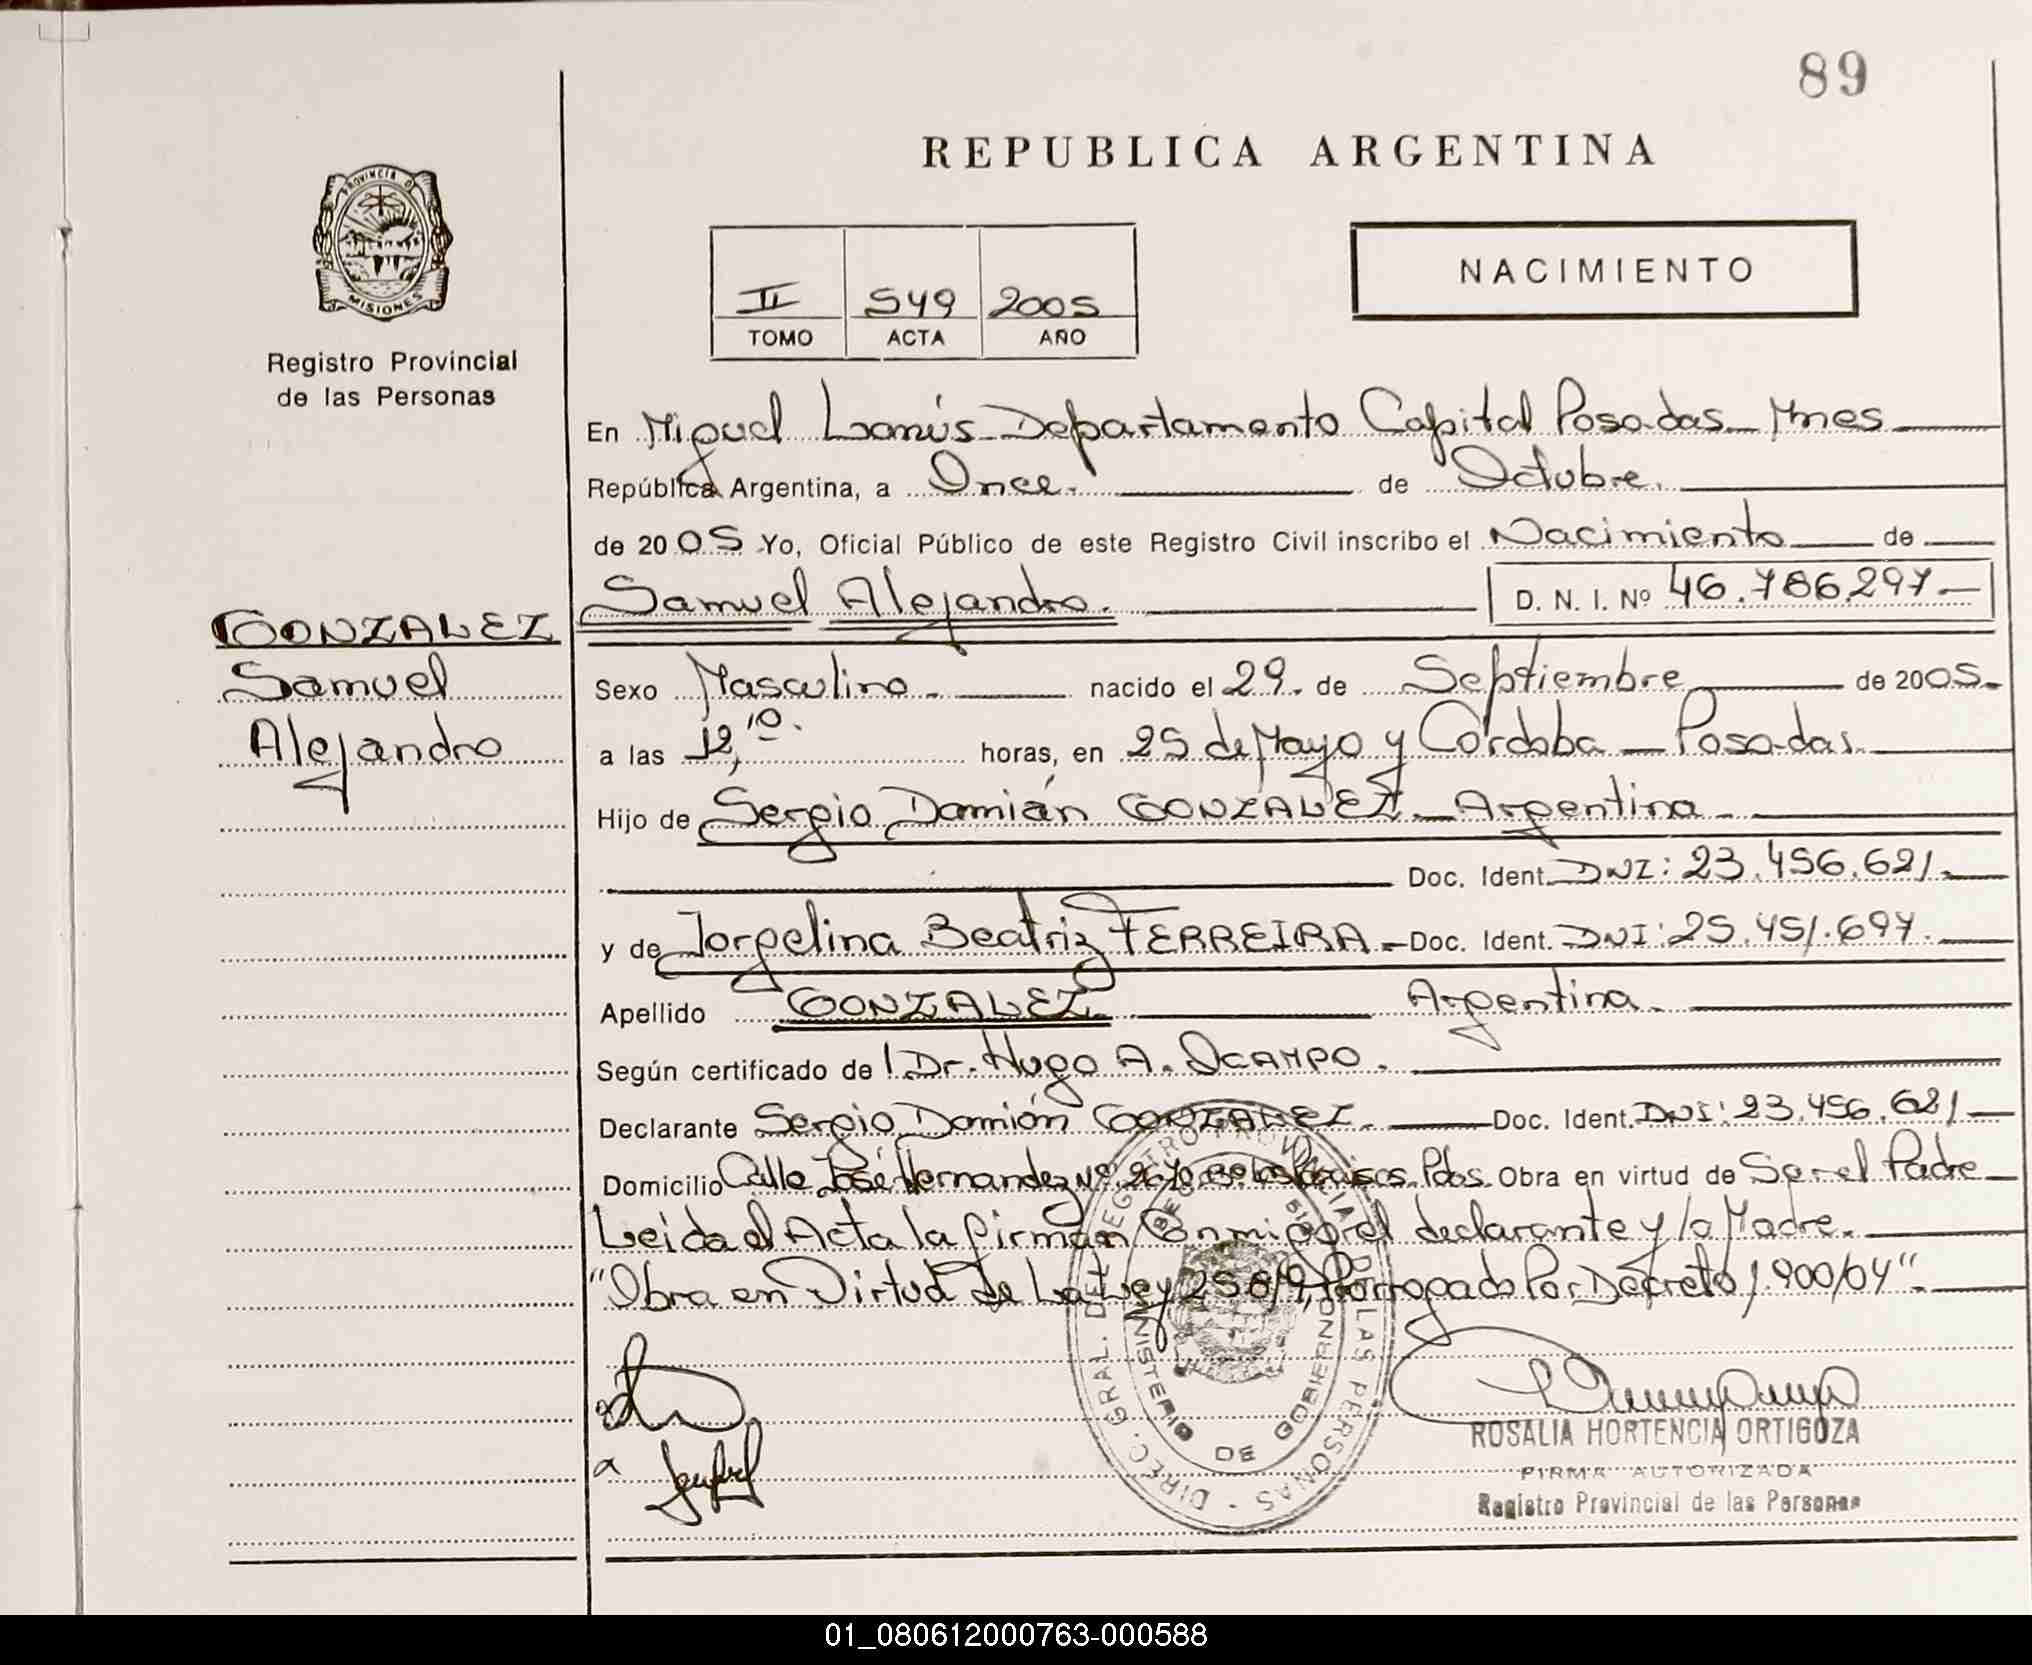 89
REPUBLICA ARGENTINA
PROVINCIA DE
MISIONES
Registro Provincial
de las Personas
II 549 2005
TOMO ACTA AÑO
NACIMIENTO
En Miguel Lanús Departamento Capital Posadas Mnes
República Argentina, a Once. de Octubre.
de 2005 Yo, Oficial Público de este Registro Civil inscribo el Nacimiento de
Samuel Alejandro. D. N. I. Nº 46.786.297.
GONZALEZ
Samuel
Alejandro
Sexo Masculino nacido el 29 de Septiembre de 2005.
a las 12,10. horas, en 25 de Mayo y Córdoba Posadas.
Hijo de Sergio Damián GONZALEZ. Argentina
Doc. Ident. DNI: 23.456.621.
y de Jorgelina Beatriz FERREIRA. Doc. Ident. DNI: 25.451.697.
Apellido GONZALEZ. Argentina.
Según certificado de l Dr. Hugo A. OCAMPO.
Declarante Sergio Damián GONZALEZ. Doc. Ident. DNI: 23.456.621
Domicilio Calle José Hernandez Nº Pdas. Obra en virtud de Ser el Padre
Leida el Acta la firman Conmigo el declarante y la Madre.
"Obra en Virtud de La Ley 25.819, Prorrogado Por Decreto 1.900/04".
DIREC. GRAL. DEL REGISTRO PROVINCIAL DE LAS PERSONAS
MINISTERIO DE GOBIERNO
ROSALIA HORTENCIA ORTIGOZA
FIRMA AUTORIZADA
Registro Provincial de las Personas
01_080612000763-000588